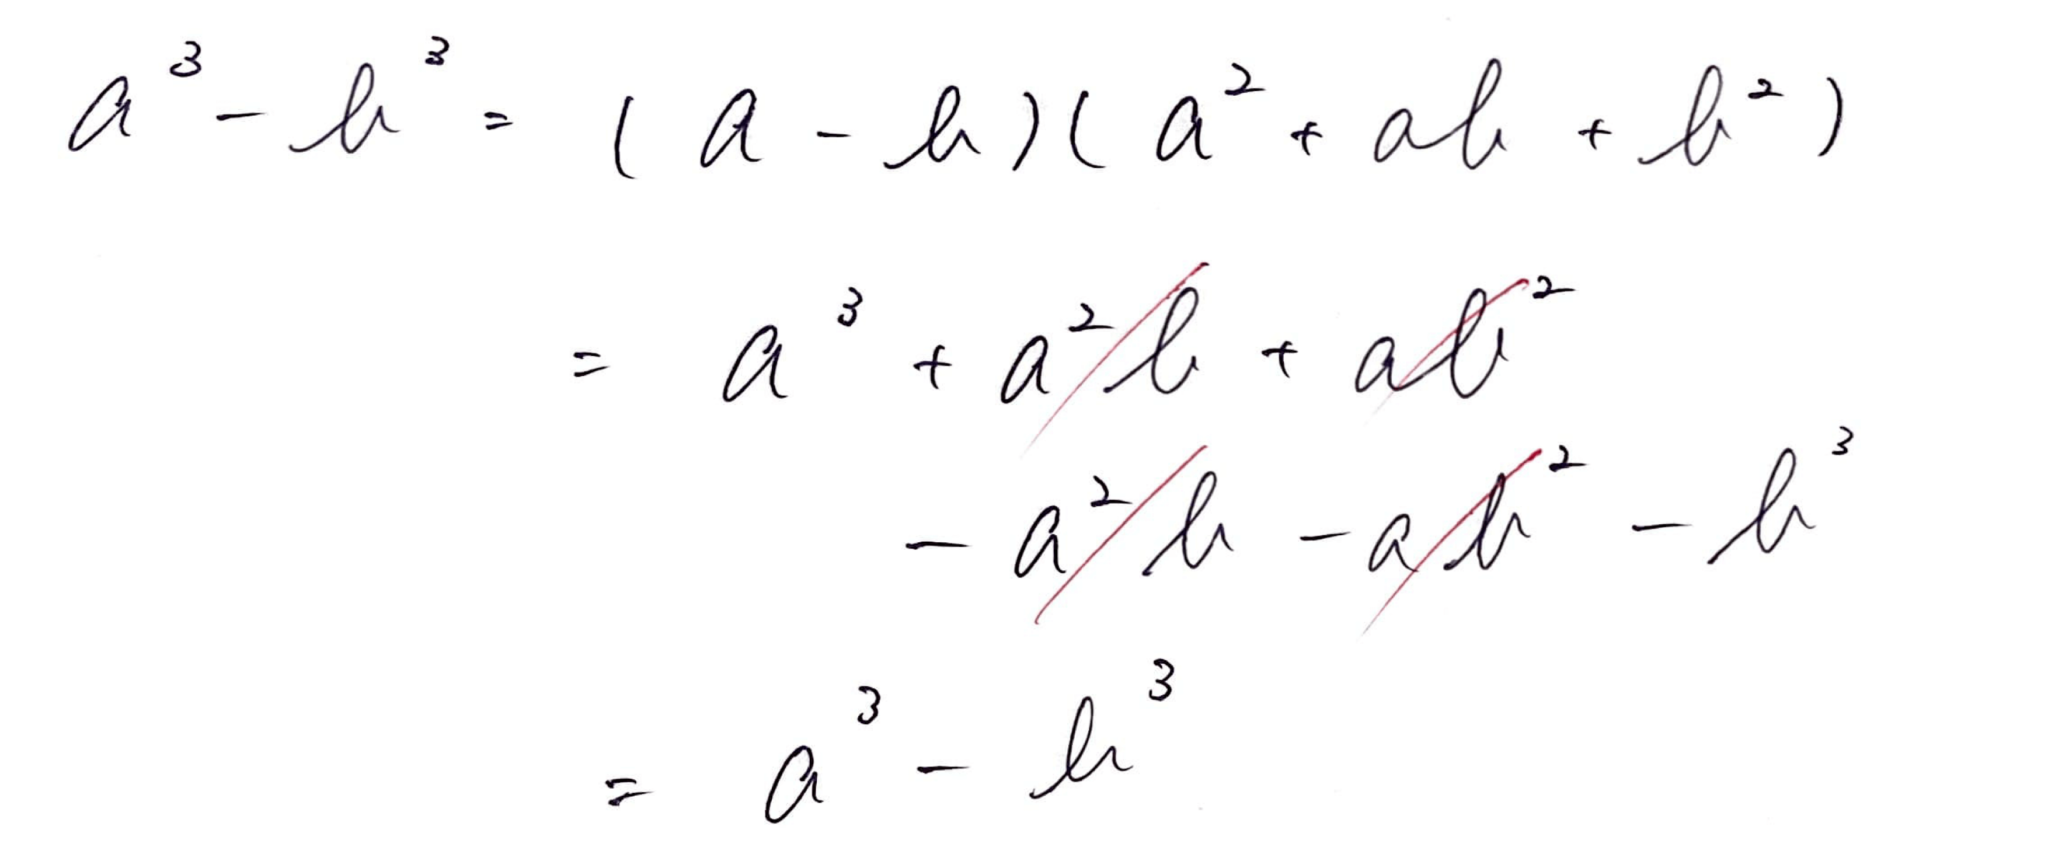 a³ - b³ = (a - b)(a² + ab + b²)
= a³ + a²b + ab²
- a²b - ab² - b³
= a³ - b³